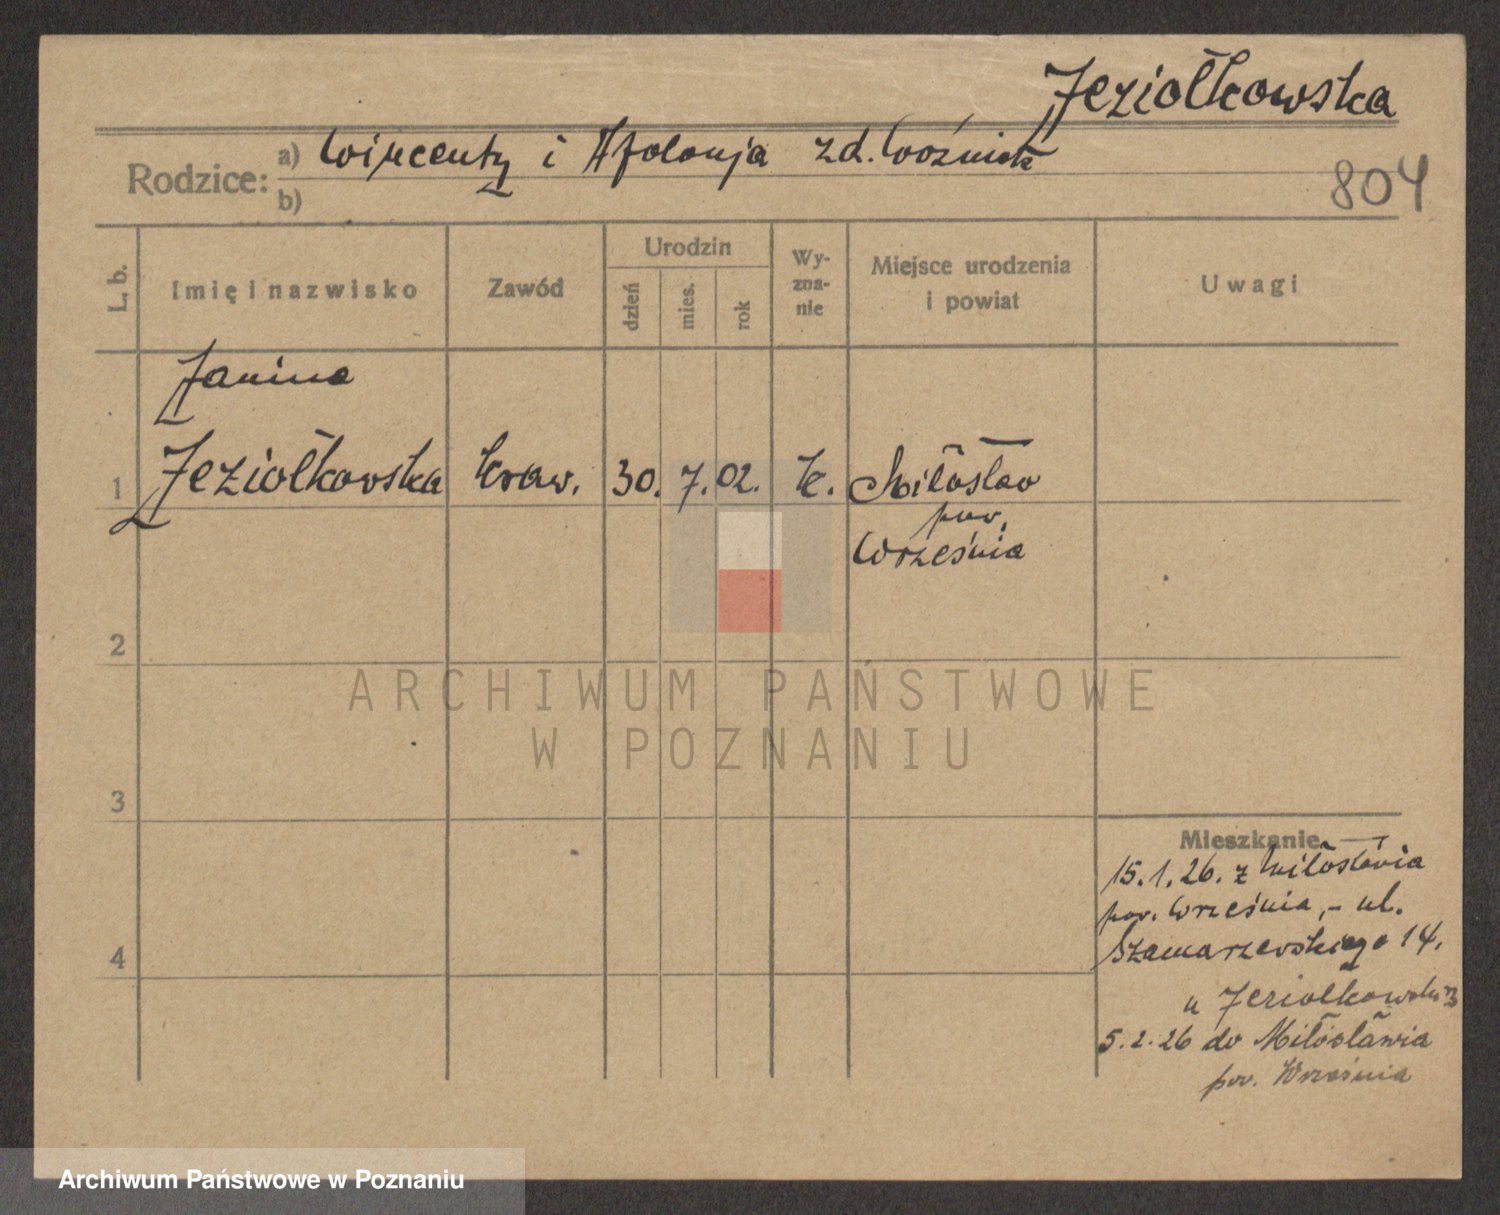 Jeziołkowska
Rodzice: a) Wincenty i Apolonja zd. Woźniak
b)
804
L. b.
Imię i nazwisko
Zawód
Urodzin
dzień
mies.
rok
Wy-
zna-
nie
Miejsce urodzenia
i powiat
Uwagi
Janina
1 Jeziołkowska kraw. 30. 7. 02. k. Miłosław
pow.
Września
2
ARCHIWUM PAŃSTWOWE
W POZNANIU
3
Mieszkanie
15.1.26. z Miłosławia
pow. Września, - ul.
Szamarzewskiego 14,
4
u Jeziołkowskiej
5.2.26 do Miłosławia
pow. Września
Archiwum Państwowe w Poznaniu